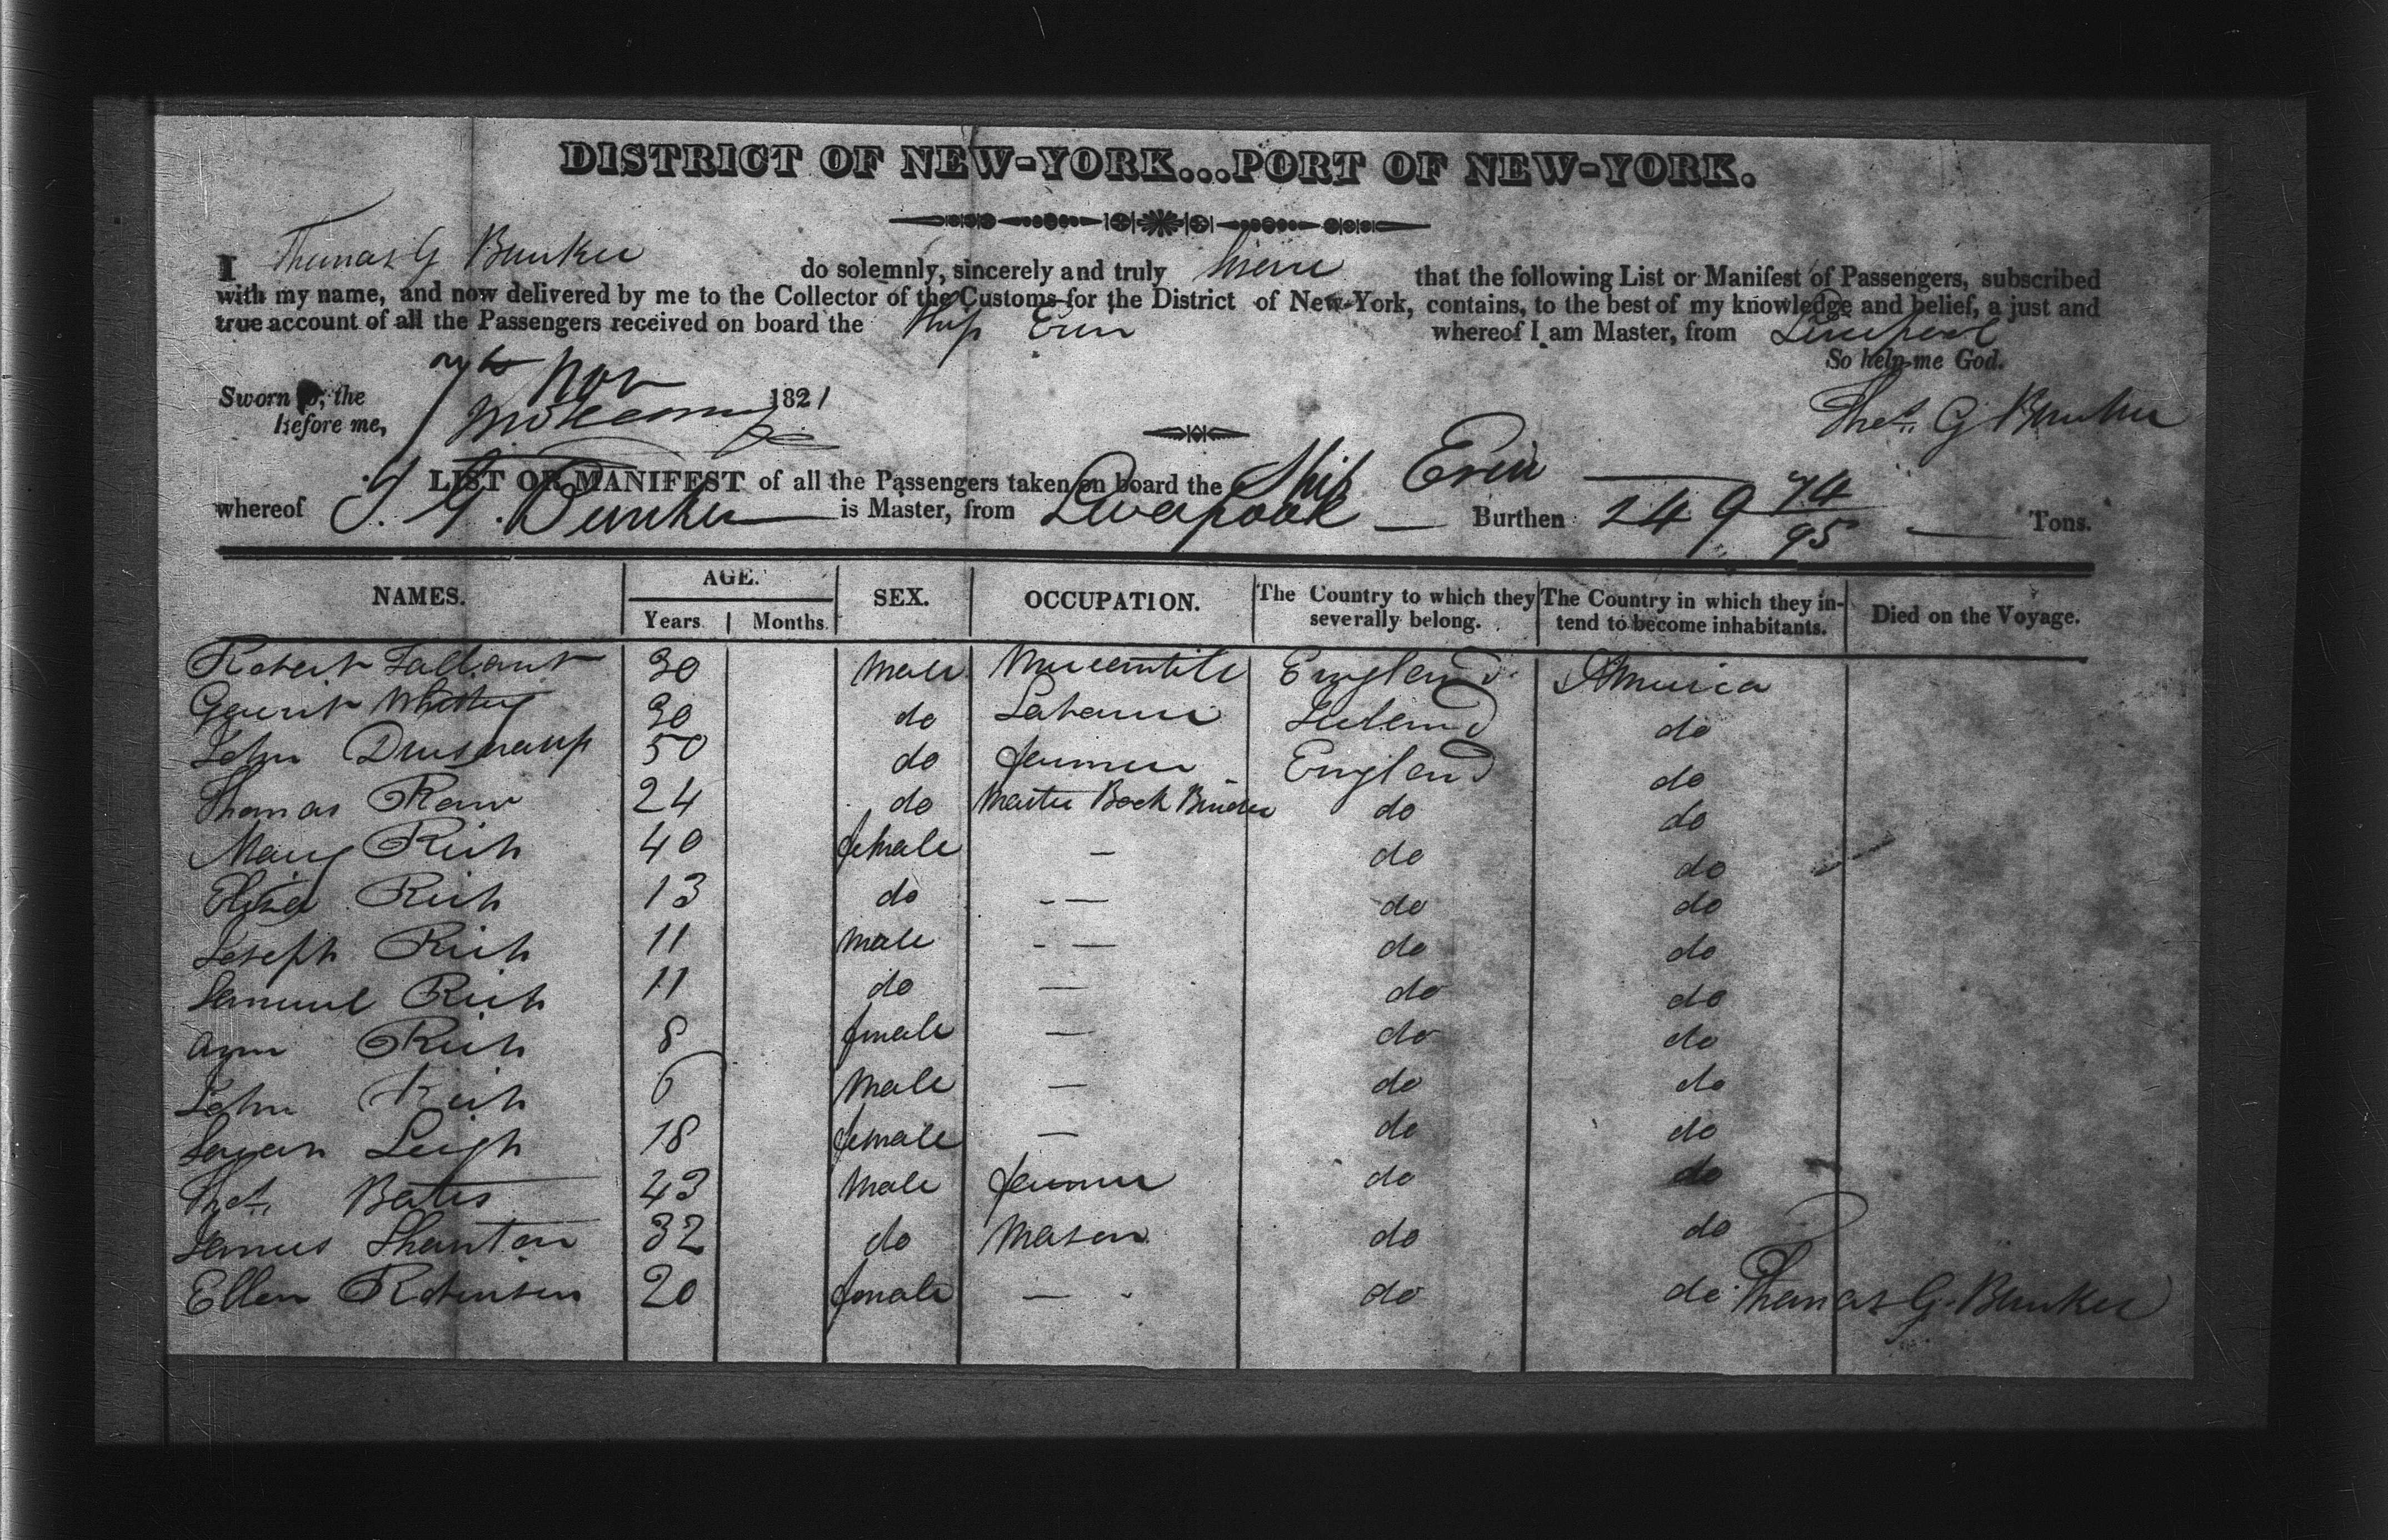 DISTRICT OF NEW-YORK...PORT OF NEW-YORK.
I Thomas G Bunker do solemnly, sincerely and truly swear that the following List or Manifest of Passengers, subscribed
with my name, and now delivered by me to the Collector of the Customs for the District of New-York, contains, to the best of my knowledge and belief, a just and
true account of all the Passengers received on board the Ship Erin whereof I am Master, from Liverpool
So help me God.
Sworn to, the Nov 1821
Before me,
Thos. G Bunker
LIST OR MANIFEST of all the Passengers taken on board the Ship Erin
whereof T. G. Bunker is Master, from Liverpool Burthen 249 74/95 Tons.
NAMES. AGE. SEX. OCCUPATION. The Country to which they severally belong. The Country in which they intend to become inhabitants. Died on the Voyage.
Years Months
Robert Tallant 30 Male Mercantile England America
Whitty 30 do Labourer Ireland do
John 50 do Farmer England do
Thomas Raw 24 do Master Book Binder do do
Mary Rich 40 female – do do
Eliza Rich 13 do - — do do
Joseph Rich 11 Male - — do do
Samuel Rich 11 do — do do
Ann Rich 8 female — do do
John Rich 6 Male — do do
Sarah Leigh 18 female — do do
Thos. Bates 43 Male Farmer do do
James Shanton 32 do Mason do do
Ellen Robinson 20 female — do do
Thomas G. Bunker